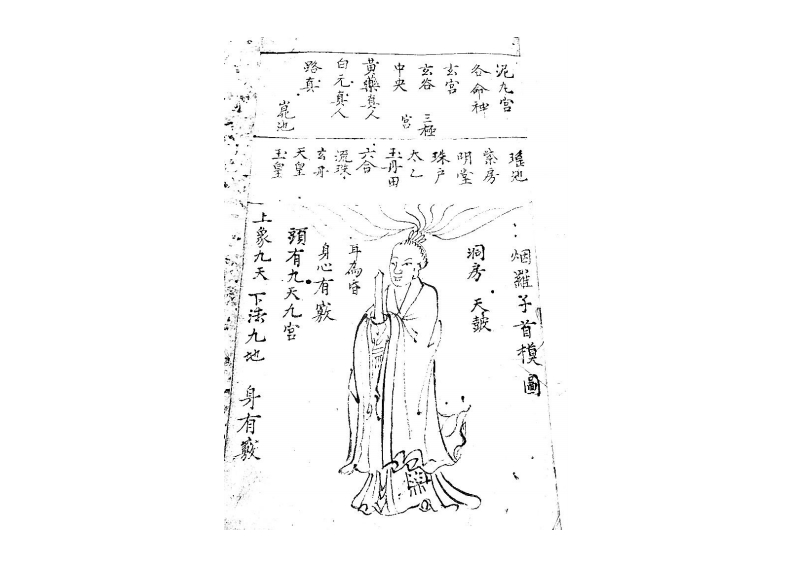 烟羅子首模圖
泥九宮
各命神
玄宮
玄谷
三極
中央
宮
黃藥真人
白元真人
路真
崑池
瑤池
紫房
明堂
珠户
太乙
玉丹田
六合
流珠
玄丹
天皇
玉皇
洞房
天鼓
耳為
身心有竅
頭有九天九宮
上象九天下法九地
身有竅